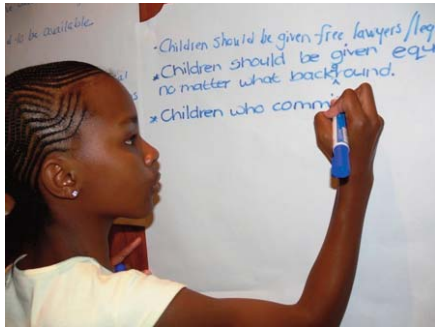 d to be available
· Children should be given free lawyers/leg
* Children should be given equ
no matter what background.
* Children who commi